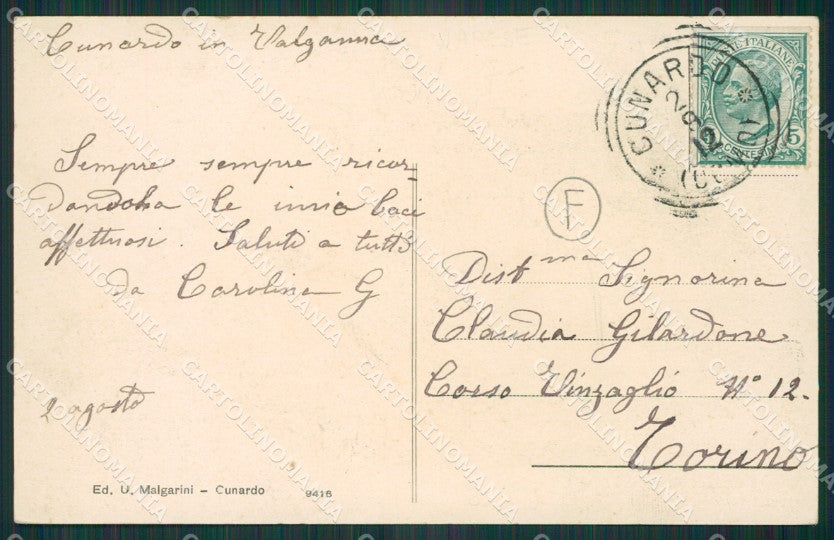 Cunardo in Valganna
Sempre sempre ricor-
dandola le invio baci
affettuosi. Saluti a tutti
da Carolina G
2 agosto
Ed. U. Malgarini - Cunardo 9418
POSTE ITALIANE
CENTESIMI 5
CUNARDO
(COMO)
2 8 12
F
Dist ma Signorina
Claudia Gilardone
Corso Vinzaglio No 12.
Torino
CARTOLINOMANIA